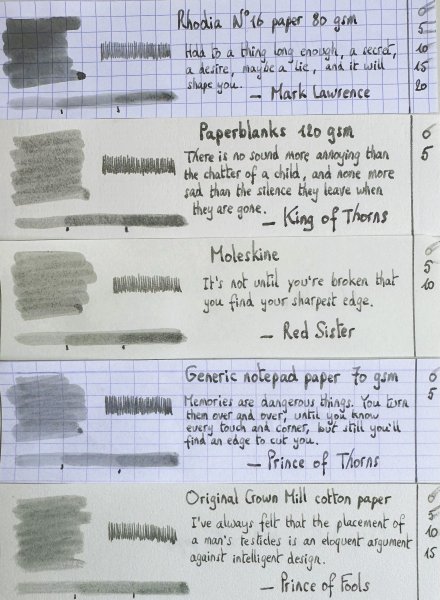 Rhodia N°16 paper 80 gsm
Hold to a thing long enough, a secret,
a desire, maybe a lie, and it will
shape you.
— Mark Lawrence
0
5
10
15
20
Paperblanks 120 gsm
There is no sound more annoying than
the chatter of a child, and none more
sad than the silence they leave when
they are gone.
— King of Thorns
0
5
Moleskine
It's not until you're broken that
you find your sharpest edge.
— Red Sister
0
5
10
Generic notepad paper 70 gsm
Memories are dangerous things. You turn
them over and over, until you know
every touch and corner, but still you'll
find an edge to cut you.
— Prince of Thorns
0
5
Original Crown Mill cotton paper
I've always felt that the placement of
a man's testicles is an eloquent argument
against intelligent design.
— Prince of Fools
0
5
10
15